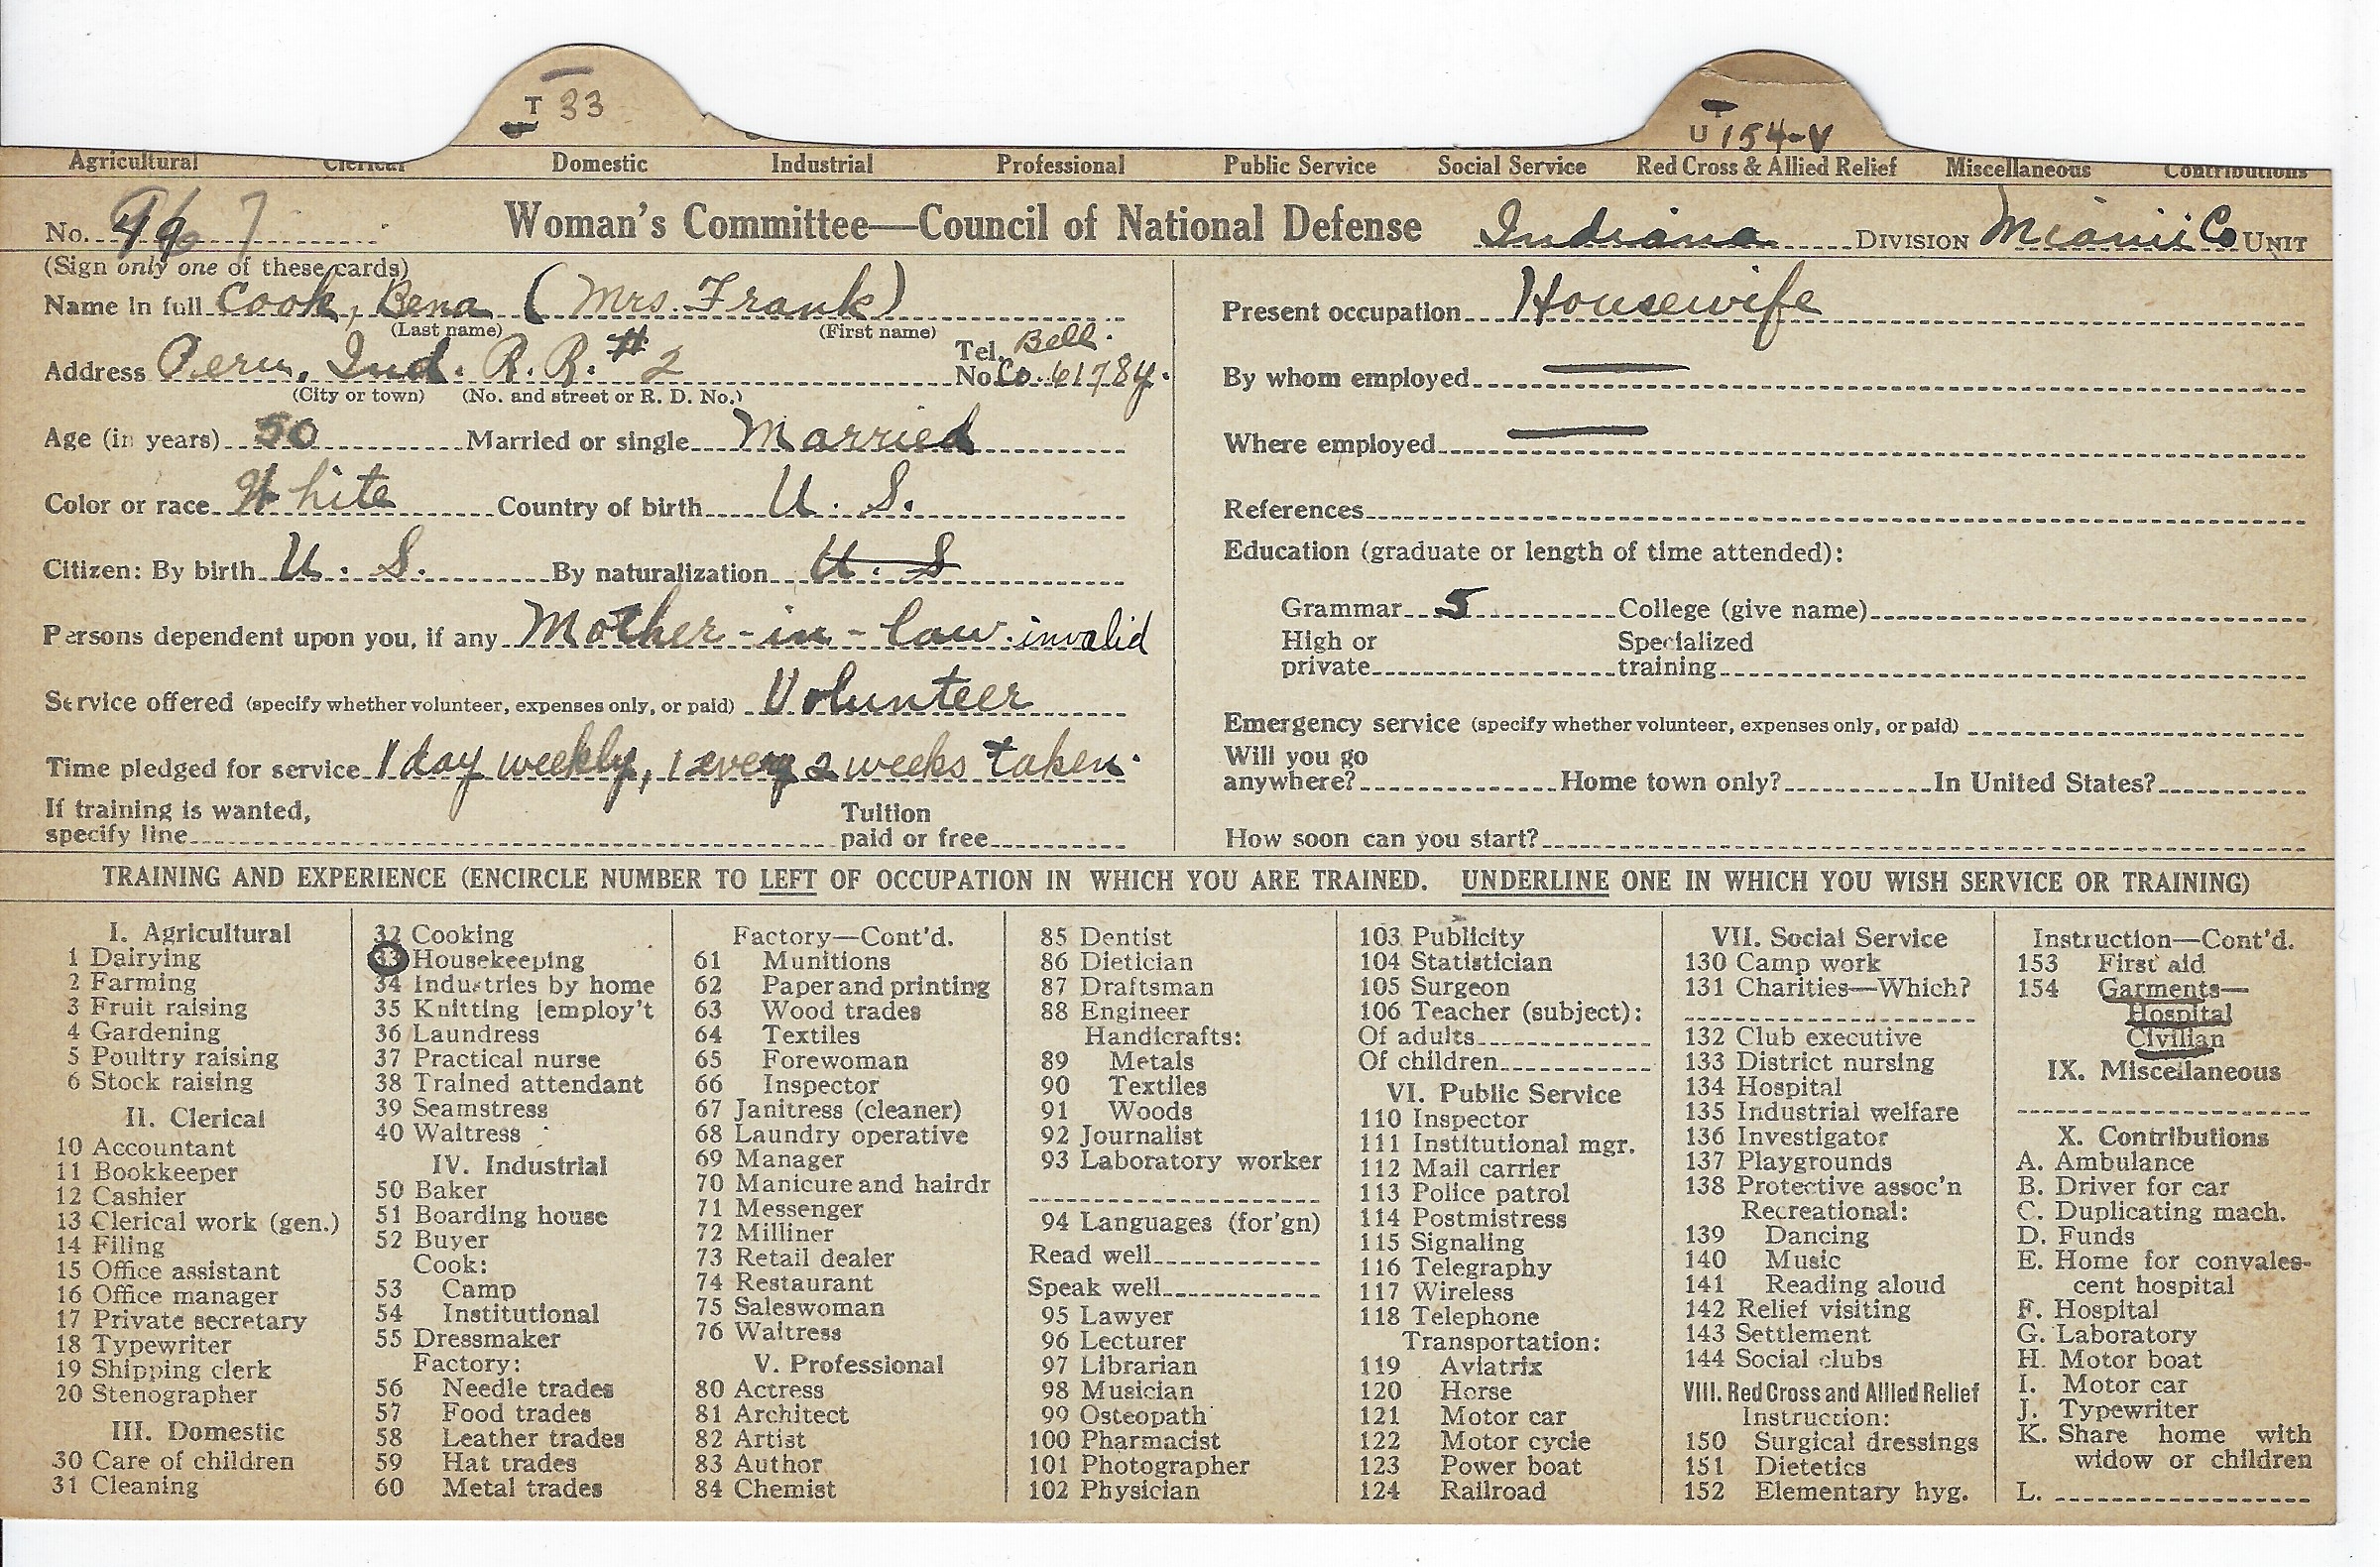 T 33
U 154-V
Agricultural Clerical Domestic Industrial Professional Public Service Social Service Red Cross & Allied Relief Miscellaneous Contributions
No. Woman's Committee—Council of National Defense Indiana DIVISION Miami Co UNIT
(Sign only one of these cards)
Name in full Cook, Bena (Mrs. Frank)
(Last name) (First name)
Address Peru, Ind. R. R. #2 Tel. No. Bell. Co. 61784.
(City or town) (No. and street or R. D. No.)
Age (in years) 50 Married or single Married
Color or race White Country of birth U. S.
Citizen: By birth U. S. By naturalization U. S
Persons dependent upon you, if any Mother-in-law invalid
Service offered (specify whether volunteer, expenses only, or paid) Volunteer
Time pledged for service 1 day weekly, 1 every 2 weeks taken.
If training is wanted,
specify line Tuition
paid or free
Present occupation Housewife
By whom employed —
Where employed —
References
Education (graduate or length of time attended):
Grammar 5 College (give name)
High or
private Specialized
training
Emergency service (specify whether volunteer, expenses only, or paid)
Will you go
anywhere? Home town only? In United States?
How soon can you start?
TRAINING AND EXPERIENCE (ENCIRCLE NUMBER TO LEFT OF OCCUPATION IN WHICH YOU ARE TRAINED. UNDERLINE ONE IN WHICH YOU WISH SERVICE OR TRAINING)
I. Agricultural
1 Dairying
2 Farming
3 Fruit raising
4 Gardening
5 Poultry raising
6 Stock raising
II. Clerical
10 Accountant
11 Bookkeeper
12 Cashier
13 Clerical work (gen.)
14 Filing
15 Office assistant
16 Office manager
17 Private secretary
18 Typewriter
19 Shipping clerk
20 Stenographer
III. Domestic
30 Care of children
31 Cleaning
32 Cooking
33 Housekeeping
34 Industries by home
35 Knitting [employ't
36 Laundress
37 Practical nurse
38 Trained attendant
39 Seamstress
40 Waitress
IV. Industrial
50 Baker
51 Boarding house
52 Buyer
Cook:
53 Camp
54 Institutional
55 Dressmaker
Factory:
56 Needle trades
57 Food trades
58 Leather trades
59 Hat trades
60 Metal trades
Factory—Cont'd.
61 Munitions
62 Paper and printing
63 Wood trades
64 Textiles
65 Forewoman
66 Inspector
67 Janitress (cleaner)
68 Laundry operative
69 Manager
70 Manicure and hairdr
71 Messenger
72 Milliner
73 Retail dealer
74 Restaurant
75 Saleswoman
76 Waitress
V. Professional
80 Actress
81 Architect
82 Artist
83 Author
84 Chemist
85 Dentist
86 Dietician
87 Draftsman
88 Engineer
Handicrafts:
89 Metals
90 Textiles
91 Woods
92 Journalist
93 Laboratory worker
94 Languages (for'gn)
Read well
Speak well
95 Lawyer
96 Lecturer
97 Librarian
98 Musician
99 Osteopath
100 Pharmacist
101 Photographer
102 Physician
103 Publicity
104 Statistician
105 Surgeon
106 Teacher (subject):
Of adults
Of children
VI. Public Service
110 Inspector
111 Institutional mgr.
112 Mail carrier
113 Police patrol
114 Postmistress
115 Signaling
116 Telegraphy
117 Wireless
118 Telephone
Transportation:
119 Aviatrix
120 Horse
121 Motor car
122 Motor cycle
123 Power boat
124 Railroad
VII. Social Service
130 Camp work
131 Charities—Which?
132 Club executive
133 District nursing
134 Hospital
135 Industrial welfare
136 Investigator
137 Playgrounds
138 Protective assoc'n
Recreational:
139 Dancing
140 Music
141 Reading aloud
142 Relief visiting
143 Settlement
144 Social clubs
VIII. Red Cross and Allied Relief
Instruction:
150 Surgical dressings
151 Dietetics
152 Elementary hyg.
Instruction—Cont'd.
153 First aid
154 Garments—
Hospital
Civilian
IX. Miscellaneous
X. Contributions
A. Ambulance
B. Driver for car
C. Duplicating mach.
D. Funds
E. Home for convales-
cent hospital
F. Hospital
G. Laboratory
H. Motor boat
I. Motor car
J. Typewriter
K. Share home with
widow or children
L.